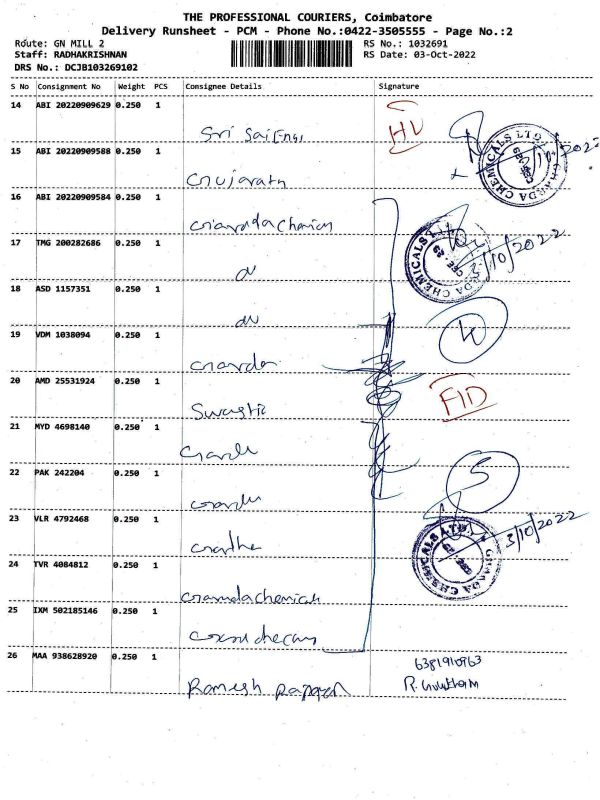 THE PROFESSIONAL COURIERS, Coimbatore
Delivery Runsheet - PCM - Phone No.:0422-3505555 - Page No.:2
Route: GN MILL 2
RS No.: 1032691
Staff: RADHAKRISHNAN
RS Date: 03-Oct-2022
DRS No.: DCJB103269102
S No Consignment No Weight PCS Consignee Details Signature
14 ABI 20220909629 0.250 1
Sri Sai Engi
HU
15 ABI 20220909588 0.250 1
GHARDA CHEMICALS LTD.
16 ABI 20220909584 0.250 1
Gharda Chemicals
17 TMG 200282686 0.250 1
GHARDA CHEMICALS LTD.
3/10/2022
18 ASD 1157351 0.250 1
19 VDM 1038094 0.250 1
Gharda
20 AMD 25531924 0.250 1
Swastic
21 MYD 4698140 0.250 1
22 PAK 242204 0.250 1
5
23 VLR 4792468 0.250 1
GHARDA CHEMICALS LTD.
3/10/2022
24 TVR 4084812 0.250 1
Gharda chemicals
25 IXM 502185146 0.250 1
26 MAA 938628920 0.250 1
Ramesh